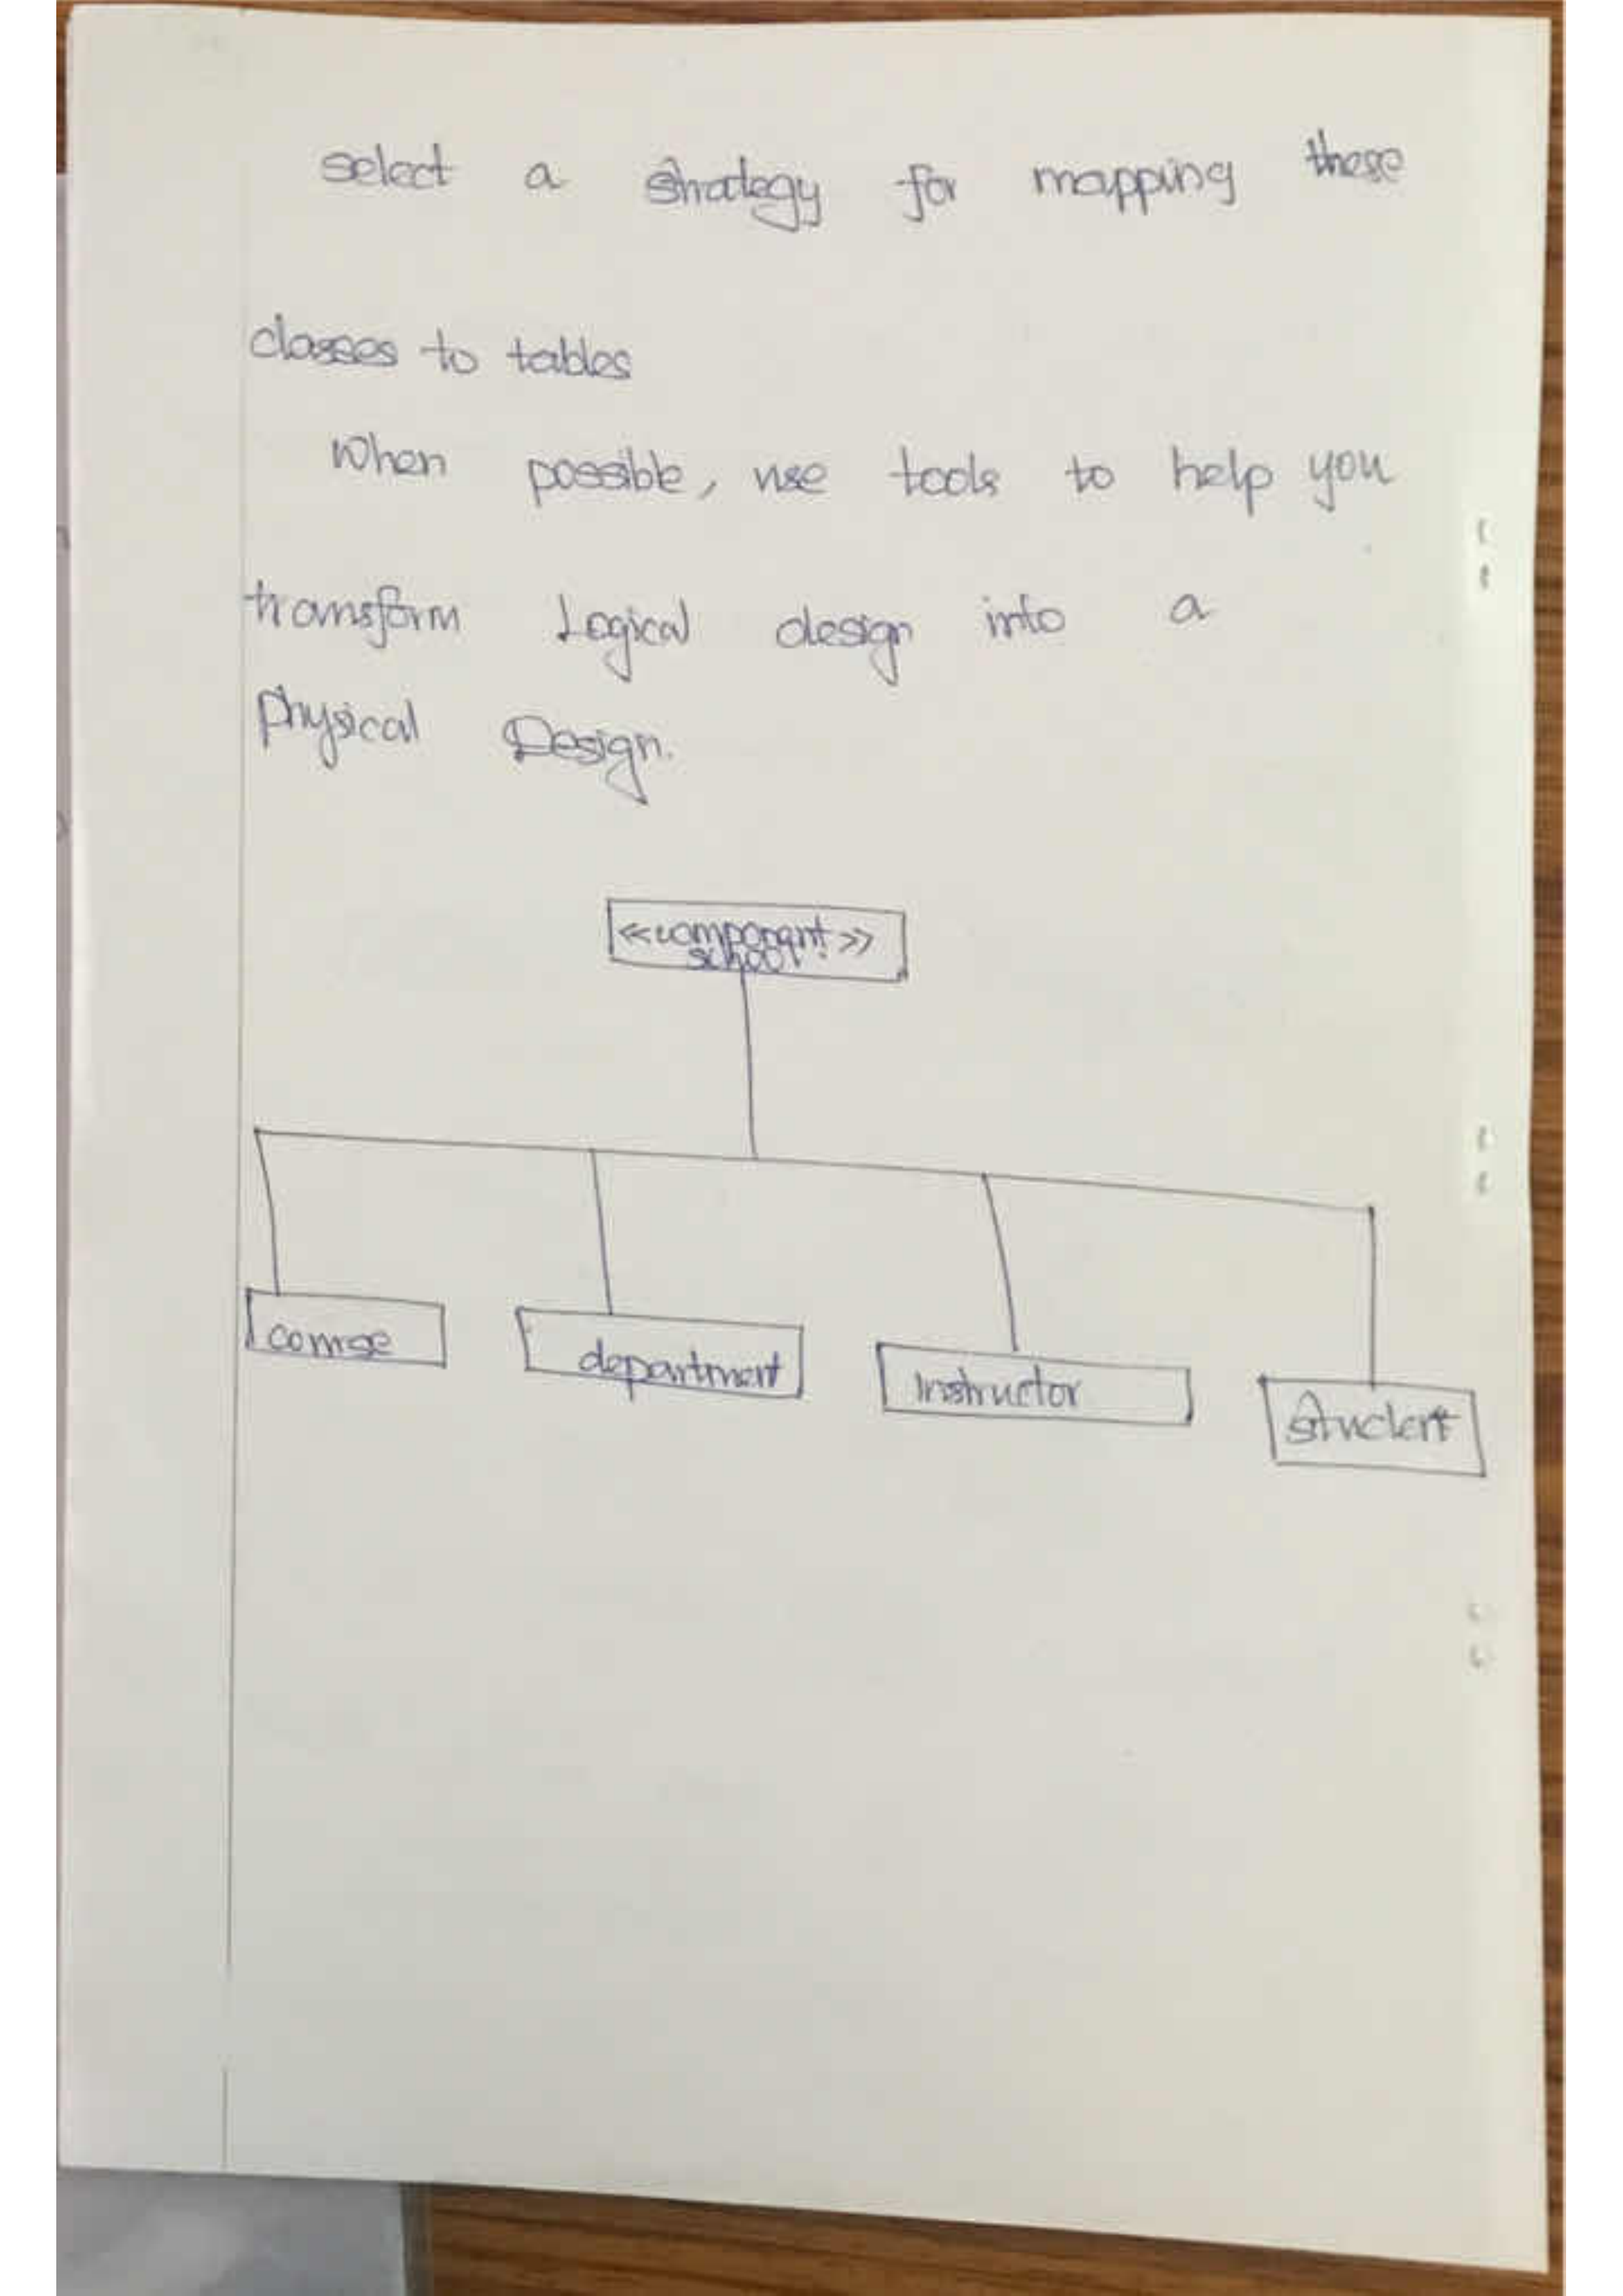 select a strategy for mapping these
classes to tables
When possible, use tools to help you
transform Logical design into a
Physical Design.
<<component>>
school
course department Instructor student